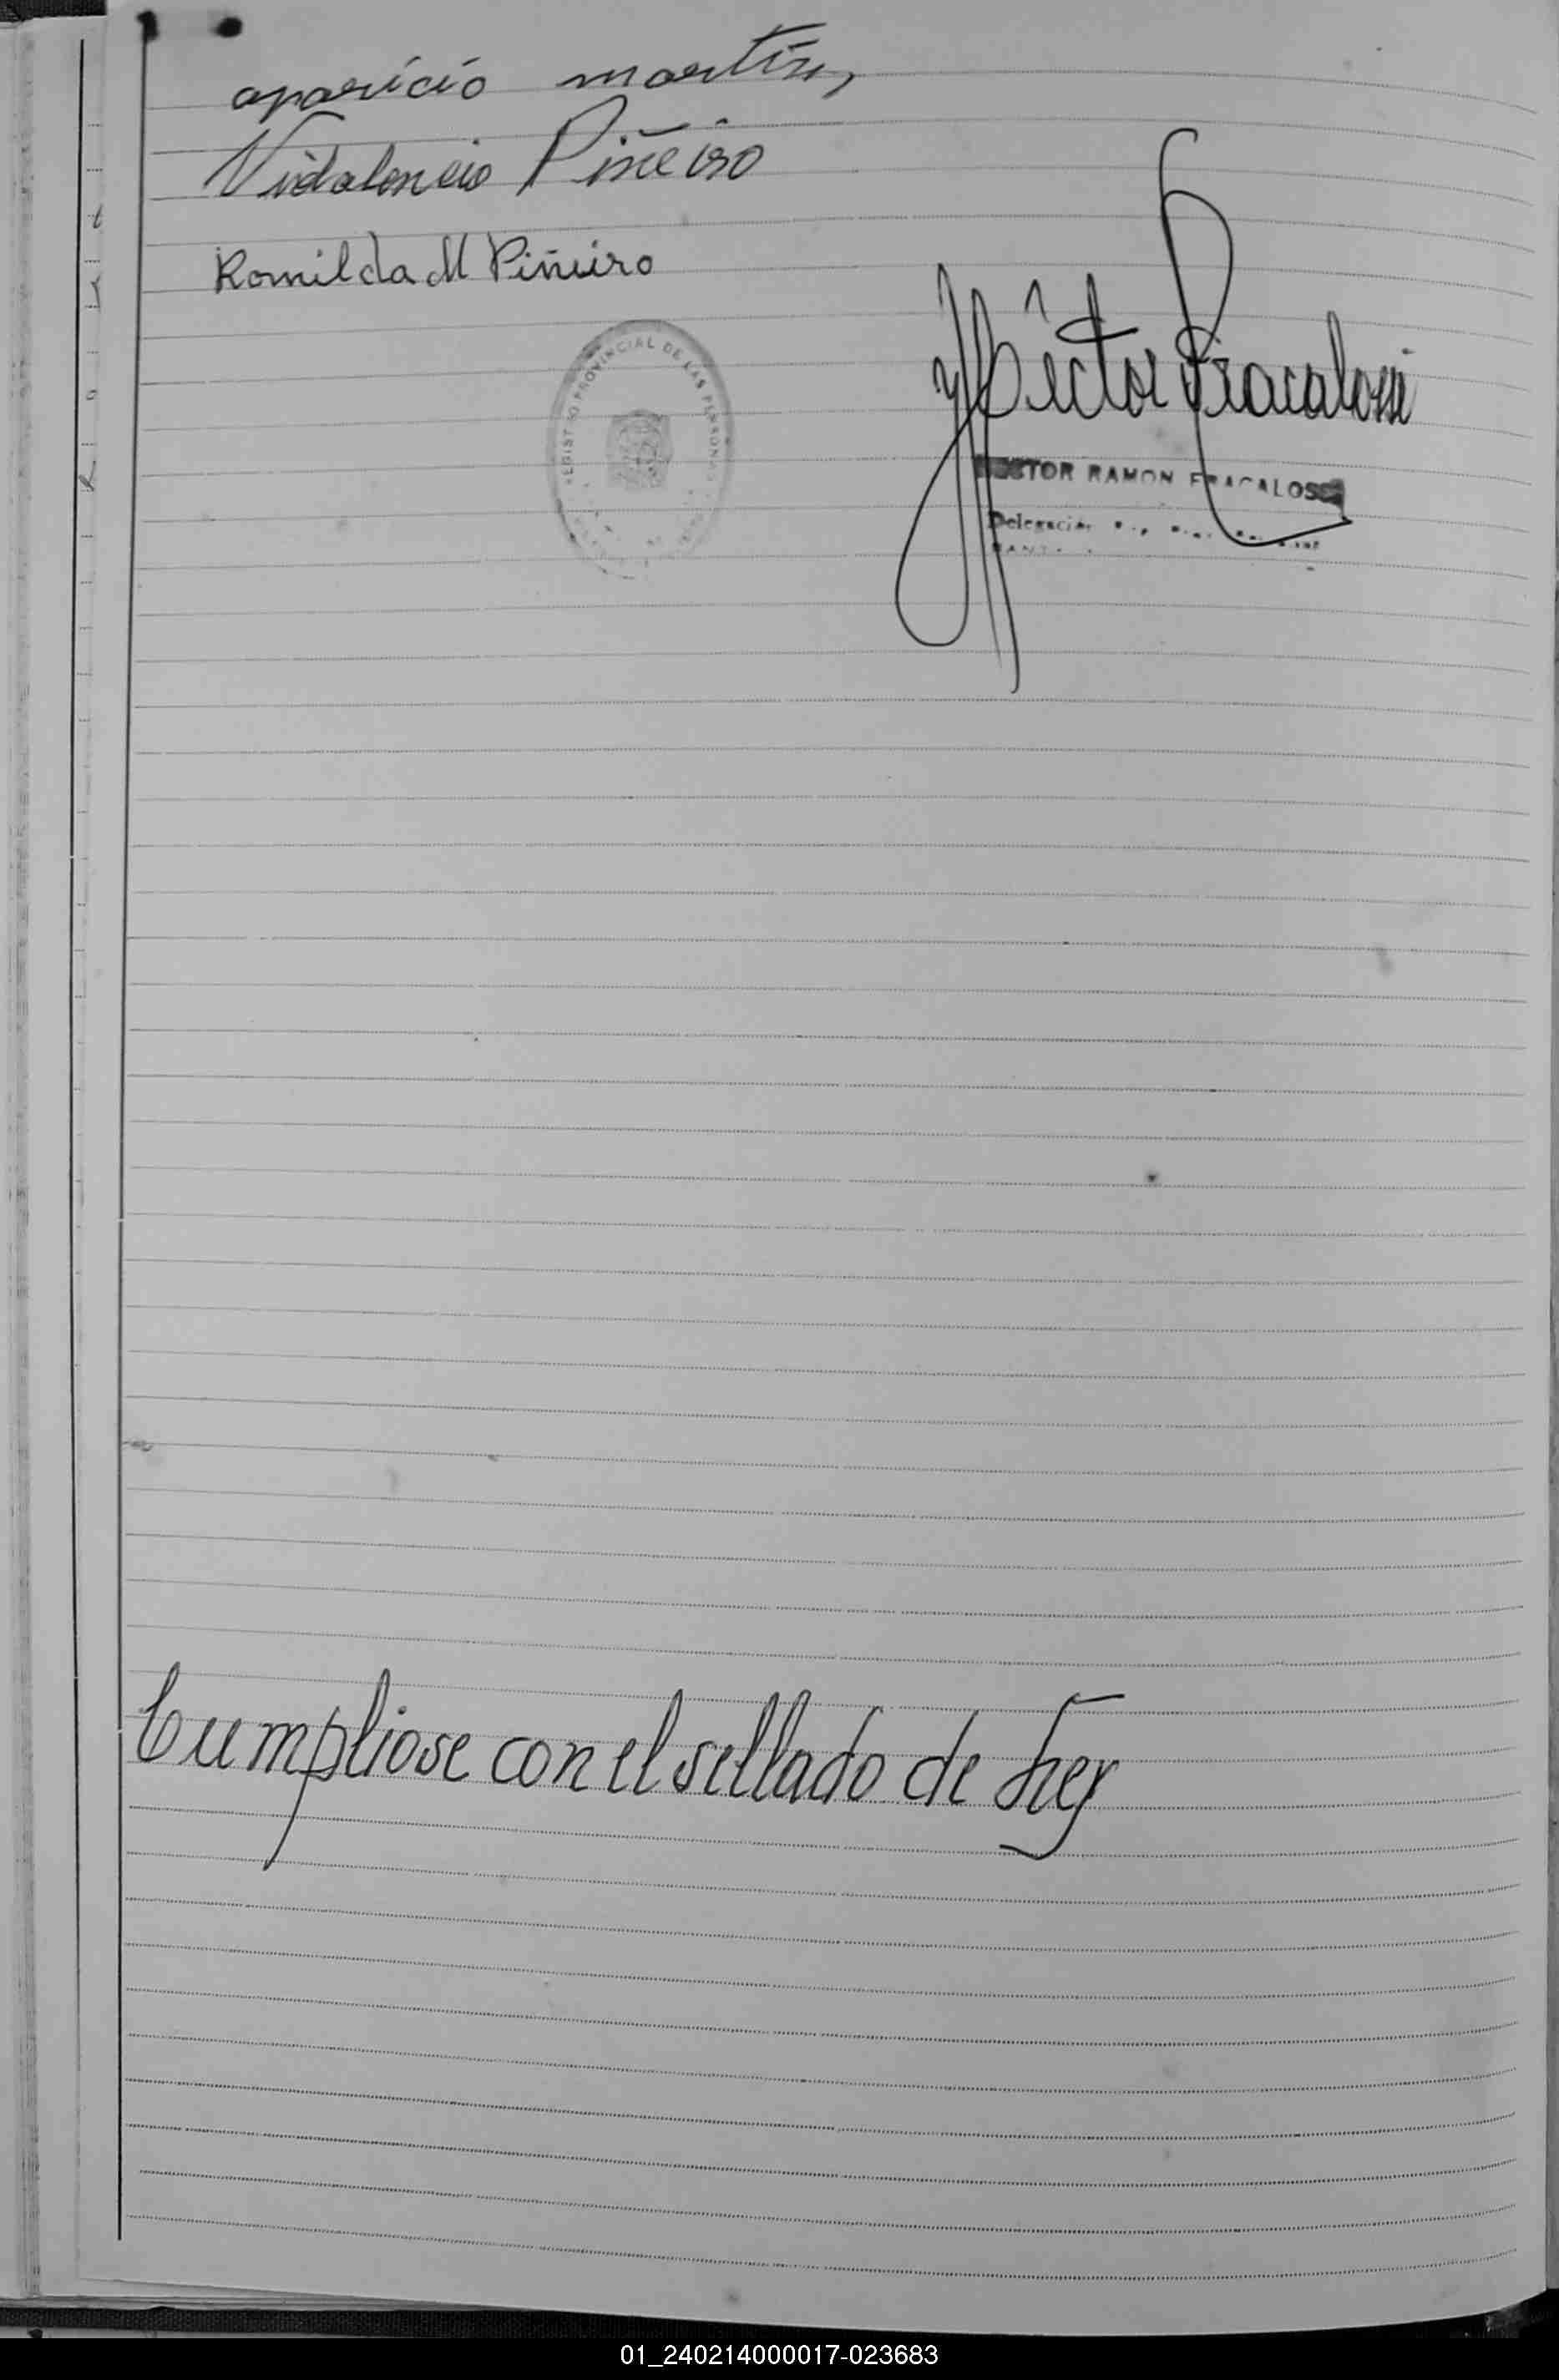 aparicio martinez
Vidalencio Piñeiro
Romilda M Piñeiro
REGISTRO PROVINCIAL DE LAS PERSONAS
Héctor Fracalossi
HECTOR RAMON FRACALOSSI
Delegación
Cumpliose con el sellado de Ley
01_240214000017-023683